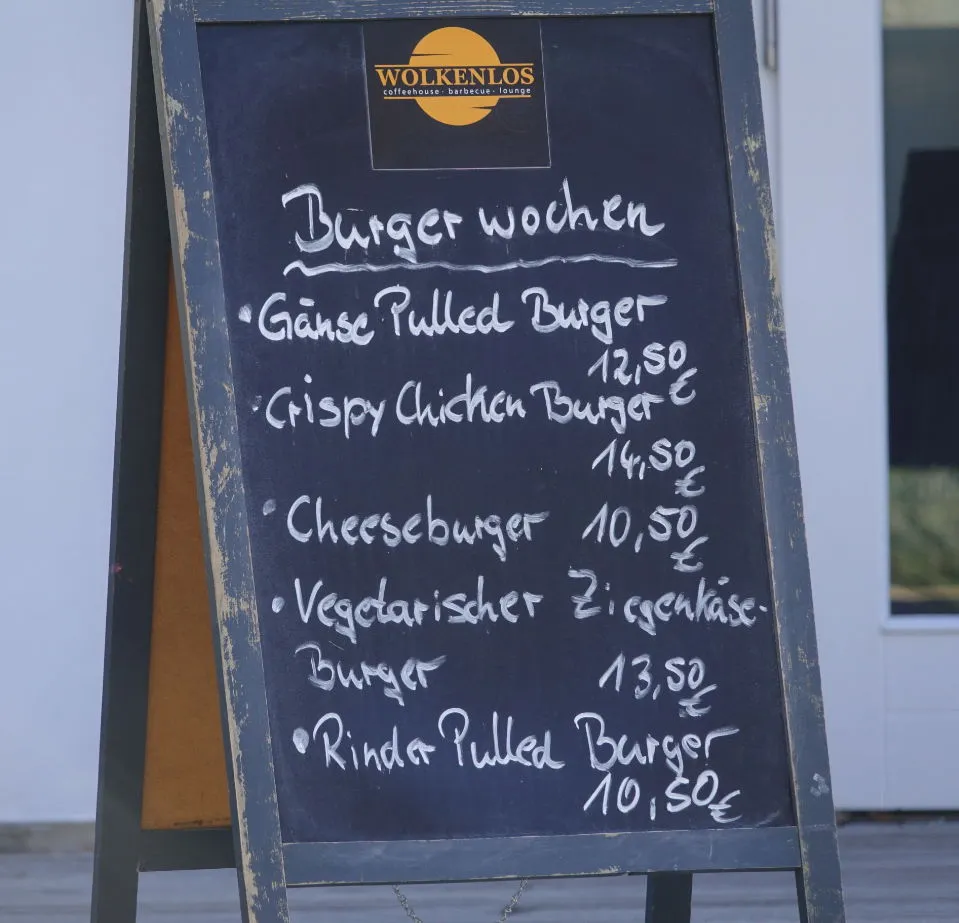 WOLKENLOS
coffeehouse · barbecue · lounge
Burger wochen
• Gänse Pulled Burger
12,50 €
• Crispy Chicken Burger
14,50 €
• Cheeseburger 10,50 €
• Vegetarischer Ziegenkäse-
Burger 13,50 €
• Rinder Pulled Burger
10,50 €